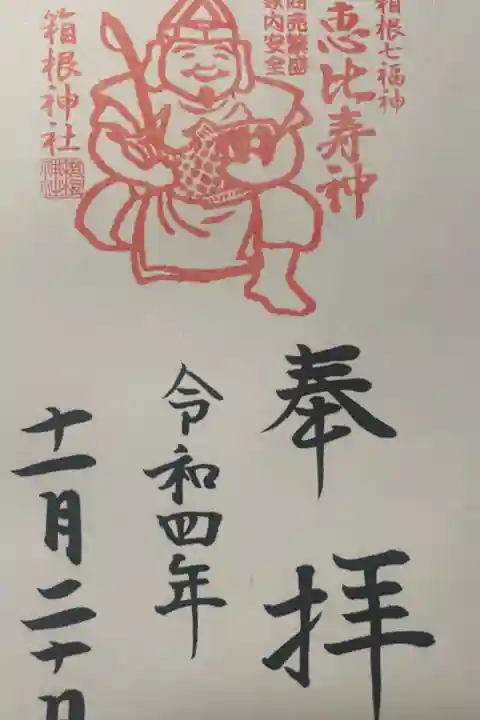 箱根七福神
恵比寿神
商売繁昌
家内安全
箱根神社
奉拝
令和四年
十一月二十日